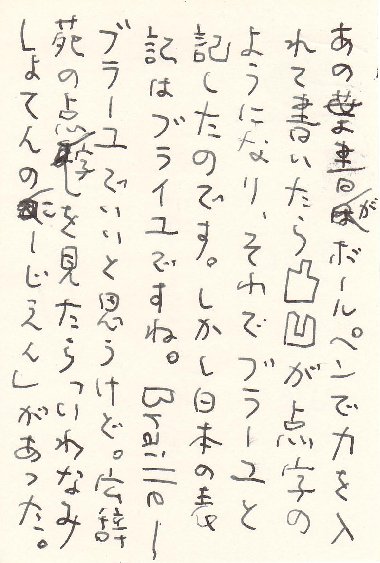 あの葉書がボールペンで力を入
れて書いたら凸凹が点字の
ようになり、それでブラーユと
記したのです。しかし日本の表
記はブライユですね。Braille―
ブラーユでいいと思うけど。広辞
苑の点字を見たら「いわなみ
しよてんのこーじえん」があった。